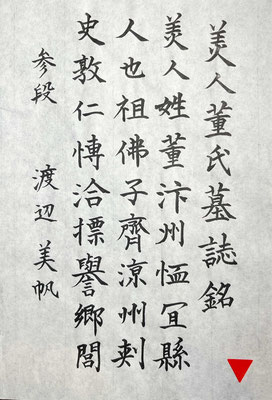 美人董氏墓誌銘
美人姓董汴州恤宜縣
人也祖佛子齊涼州刺
史敦仁博洽摽譽鄉閭
参段 渡辺美帆